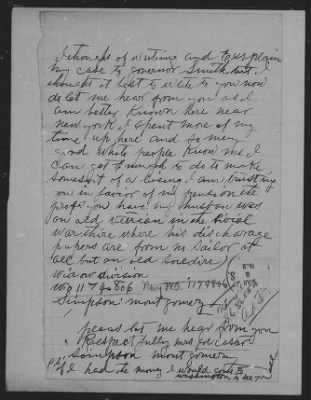 I thought of writing and to explain
my case to governor Smith but I
thought it best to write to you now
do let me hear from you as I
am better Known there near
new york I spent more of my
time up here and so men
good white people Know me I
can get to work to do to make
some sort of a living I am trusting
you in favor of my pension the
profs you have my husban was
an old veterean in the Sivial
war there where his discharge
papers are from no Sailor at
all but an old Soredire
widow division
W.O. 1174806 Navy W.O. 1174806
Simpson montgomery
pleeas let me hear from you
Respectfully mrs
Simpson montgomery
P.S. If I had the money I would come to
washington to see you